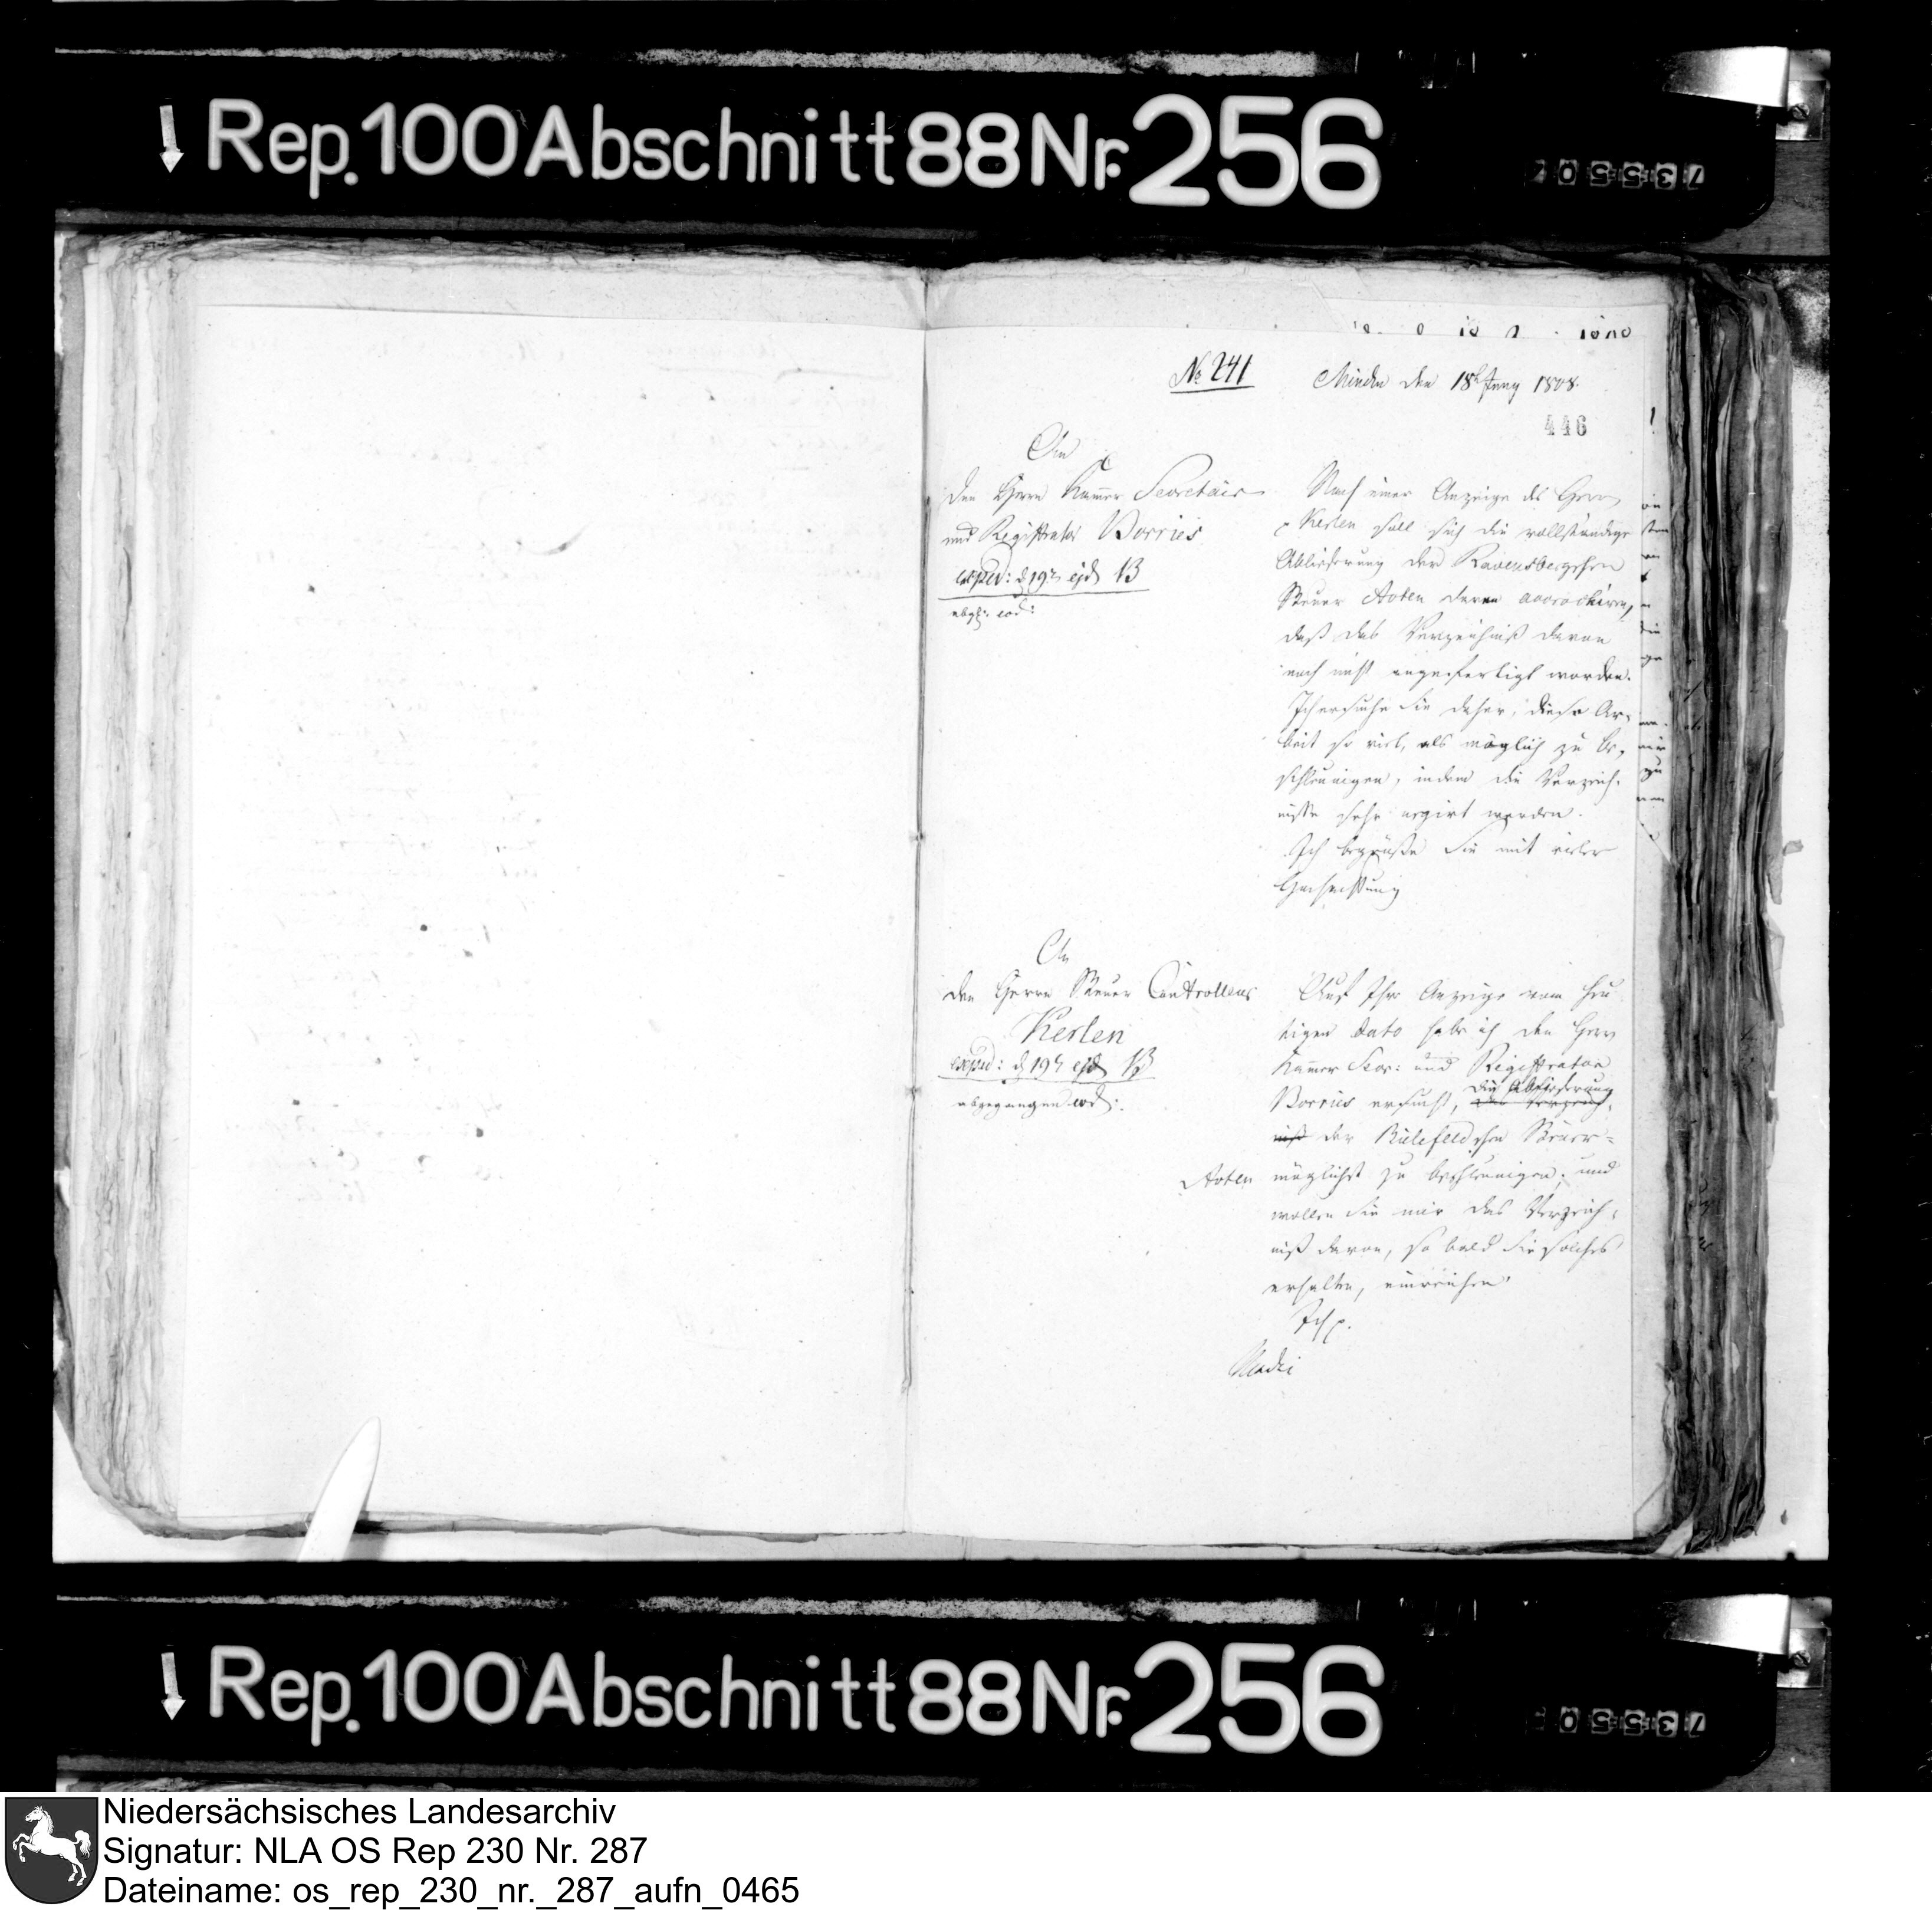 Rep. 100 Abschnitt 88 Nr. 256
73550
No 241
Minden den 18t Juny 1808.
446
An
den Herrn Kammer Secretair
und Registrator Borries
exped: d 19t ejd B
abgg: eod:
Nach einer Anzeige des Herrn
p Kerlen soll sich die vollständige
Ablieferung der Ravensbergschen
Steuer Acten daran accrochiren,
daß das Verzeichniß davon
noch nicht angefertigt worden.
Ich ersuche Sie daher, diese Ar-
beit so viel, als möglich zu be-
schleunigen, indem die Verzeich-
nisse sehr urgirt werden.
Ich begrüße Sie mit vieler
Hochachtung
An
den Herrn Steuer Controlleur
Kerlen
exped: d 19t ejd B
abgegangen eod:
Auf Ihre Anzeige vom heu
tigen dato habe ich den Herrn
Kammer Secr: und Registrator
Borries ersucht, das Verzeich-
die Ablieferung
niß der Bielefeldschen Steuer-
Acten möglichst zu beschleunigen, und
wollen Sie mir das Verzeich-
niß davon, so bald Sie solches
erhalten, einreichen.
Ich p.
Mallinckrodt
Rep. 100 Abschnitt 88 Nr. 256
73550
Niedersächsisches Landesarchiv
Signatur: NLA OS Rep 230 Nr. 287
Dateiname: os_rep_230_nr._287_aufn_0465